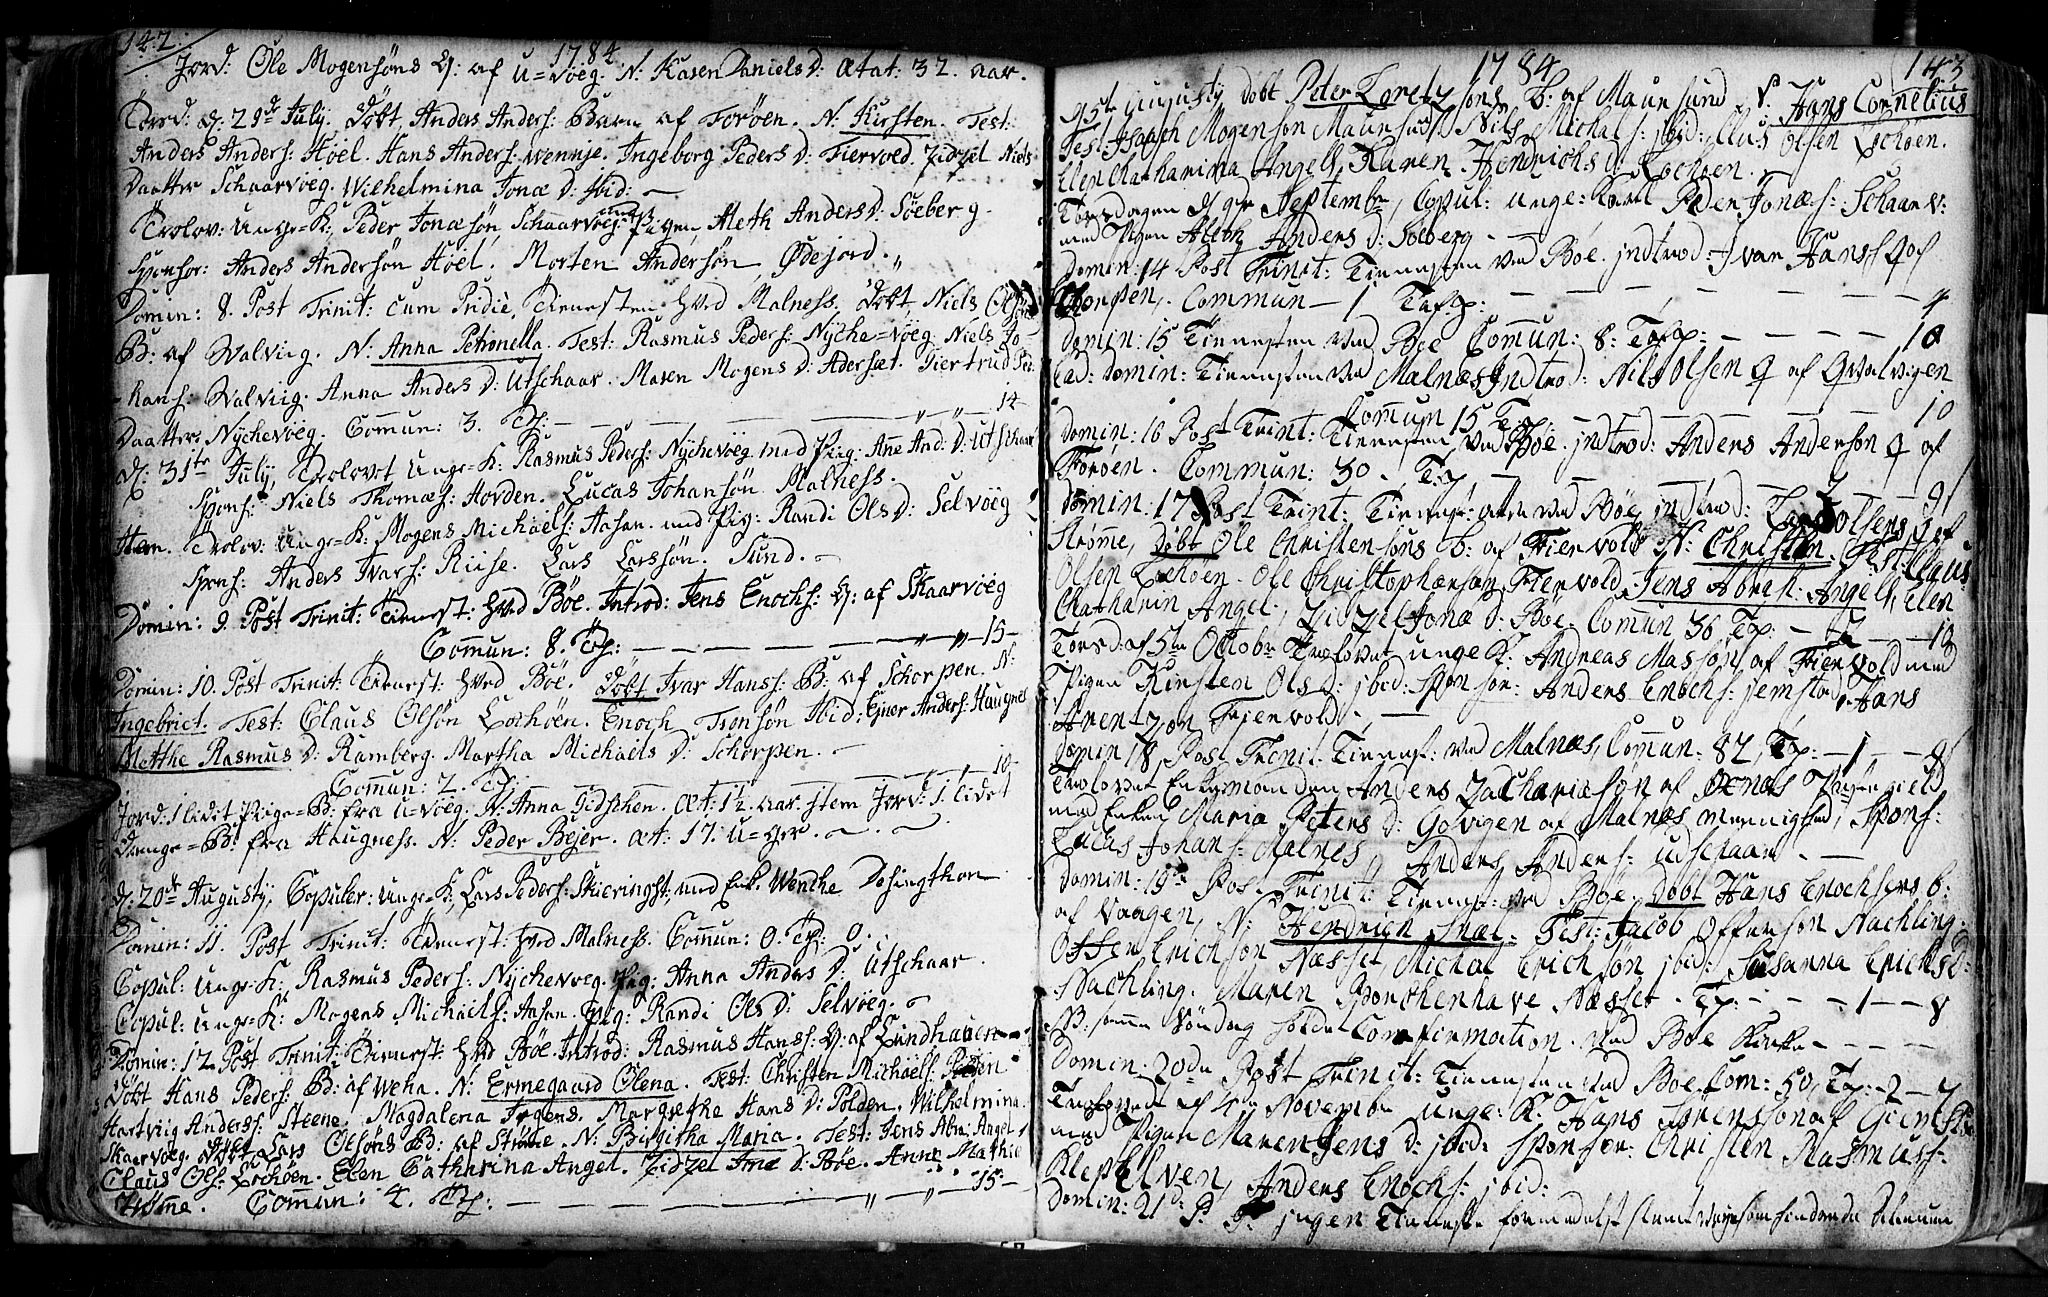 142.
1784
Jord: Ole Mogensøns Q: af U=vöeg. N: Karen Daniels D: Ætat: 32. aar.
d: 29de July. Döbt Anders Anders: Barn af Forøen. N. Kirsten. Test:
Anders Anders: Höel. Hans Anders: Wennje. Ingeborg Peders D: Fiervold. Zidzel Niels
Daatter Schaarvöeg. Wilhelmina Jonæ D: ibid: —
Trolov: Unge=K: Peder Jonæsøn Schaarvöeg med Pigen Aleth Anders D: Söeberg.
Sponsor: Anders Andersøn Höel. Morten Andersøn Ødejord.
Domin: 8. Post Trinit: cum Pridie, Tienesten hved Malness. Döbt Niels Olsøns
B: af Walvig. N: Anna Petronella. Test: Rasmus Peders: Nyche=vöeg. Niels Jo-
hans: Walviig. Anna Anders D: Utschaar. Maren Mogens D: Adersæt. Giertrud Ped:
Daatter Nychevöeg. Commun: 3. Tp: — — — — 14
d: 31te July, Trolovt Unge=K: Rasmus Peders: Nychevöeg med Pig: Anne And: D: Utschaar
Spons: Niels Thomæs: Hovden. Lucas Johansøn Malness.
Item. Trolov: Unge=K: Mogens Michaels: Aasan. med Pig: Randi Ols D: Selvöeg
Spons: Anders Ivars: Riise. Lars Larssøn. Sund. —
Domin: 9. Post Trinit: Tienest: hved Böe. Introd: Jens Enochs: Q: af Skaarvöeg
Commun: 8. Tp: — — — — 15 —
Domin: 10. Post Trinit: Tienest: hved Böe. Döbt Ivar Hanss: B: af Schorpen. N:
Ingebrict. Test: Claus Olsøn Lochöen. Enoch Tronsøn Ibid: Ejner Anders: Haugnes
Metthe Rasmus D: Ramberg. Martha Michaels D: Schorpen. —
Commun: 2. Tp: — — — 10
Jord: 1 lidet Pige=B: fra U=vöeg. N: Anna Gidschen. Æt: 1½ aar. item Jord: 1 lidet
Drenge=B: fra Haugness. N: Peder Bejer. Æt: 17: U=ger.
d: 20de Augusty, Copuler: Unge=K: Lars Peders: Skieringst: med Enk. Wenche Dosingthon
Domin: 11. Post Trinit: Tienest: hved Malness. Commun: 0. Tp: 0.
Copul: Unge=K: Rasmus Peders: Nychevoeg. Pig: Anna Anders D: Utschaar.
Copul: Unge=K: Mogens Michaels: Aasan. Pig: Randi Ols D: Selvöeg.
Domin: 12. Post Trinit: Tienest: hved Böe. Introd: Rasmus Hanss: Q: af Lindhauen
Döbt Hans Peders: B: af Weha. N: Ermegaard Olena. Test: Christen Michaels:
Hartvig Anderss: Steene. Magdalena Irgens. Margrethe Hans D: Polden. Wilhelmina
Skaarvoeg. Döbt Lars Olsøns B: af Strøme. N: Birgitha Maria. Test: Jens Abra: Angel
Claus Ols: Lochöen. Elen Catharina Angel. Zidzel Jonæ D: Böe. Anne Mathie
Strømme. Commun: 4. Tp: — — — 15 —
1784
143
d 5te Augusty döbt Peter Lorentzsøns b: af Maursund N: Hans Cornelius
Test Joseph Mogensøn Maursund Nils Michals: jbid: Claus Olsen Lochöen.
Elen Chatharina Angell, Karen Hendrichs d: Lochöen.
Torsdagen d 9de Septembr, Copul: unge: Karl Peder Jonæs: Schaarv:
med Pigen Aleth Anders d: Solberg. — —
Domin: 14 Post Trinit: Tienesten ved Böe. jndtrod: Ivar Hans: Q af
Schorpen. Commun — 1 Tafp: — — — — 4
Domin: 15 Tienesten ved Böe Comun: 8: Tafp: — — — — 10
Ead: Domin: Tienesten ved Malnæs Jndtrod: Nils Olsen Q af Qvalvigen
Commun 15 Tp — — 10
Domin: 16 Post Trinit: Tienesten ved Böe. jndtrod: Anders Anderson Q af
Forøen. Commun: 30. Tp — — 91
Domin: 17 Post Trint: Tienest: atter ved Böe jndtrod: Lars Olsens Q af
Strømme, Döbt Ole Christensøns b: af Fiervold N: Christen. Test: Claus
Olsen Lochöen. Ole Christophersøn Fiervold. Jens Abrah: Angell, Elen
Chatharin Angel, Zidzel Jonæ d: Böe. Commun 36 Tp: — 2 — 12
Torsd: d 5te Octobr Trolovet unge K: Andreas Massøn af Fiervold med
Pigen Kirsten Ols d: jbid: Sponsor: Anders Enochs: jemstad, Hans
Arentzøn Fiervold. —
Domin 18 Post Trinit. Tienest: ved Malnæs, Commun: 82, Tp: — 1 — 8
Trolovet Enkemanden Anders Zachariesøn af Øxnæs Præstegield
med Enken Maria Peters d: Govigen af Malnæs menighed, Spons:
Lucas Johans: Malnes, Anders Anders: udschaar. —
Domin: 19de Post Trinit: Tienest: ved Böe. Döbt Hans Enochsøns b:
af Vaagen, N: Hendrich Snæl. Test: Jacob Offersøn Nachling.
Offer Erichsøn Næsset Michal Erichsøn jbid: Susanna Erichs D:
Nachling. Maren Borchenhave Næsset. Tp: — — — 1 — 8
NB: samme Söndag holdet Confirmation ved Böe Kirke — — —
Domin. 20de Post Trinit: Tienesten ved Böe Com: 50, Tp: — 2 — 7
Trolovet d 4de Novembr unge: K: Hans Sørensøn af Gimst:
med Pigen Maren Jens d: jbid: Sponsor: Christen Rasmus:
Klep Elven, Anders Enochs: jbid:
Domin: 21de P. T. jngen Tieneste formedelst